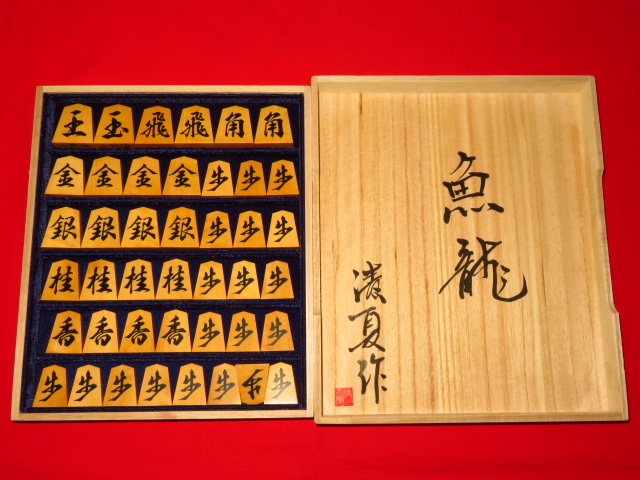 王玉飛飛角角
金金金金歩歩歩
銀銀銀銀歩歩歩
桂桂桂桂歩歩歩
香香香香歩歩歩
歩歩歩歩歩歩歩歩
魚龍
清夏作